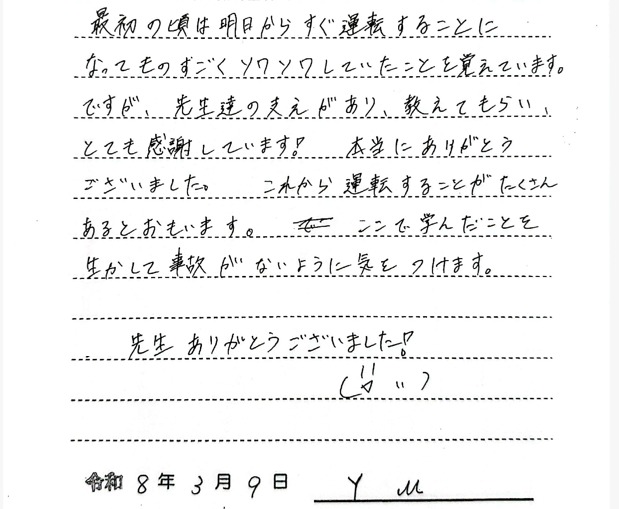 最初の頃は明日からすぐ運転することに
なってものすごくソワソワしていたことを覚えています。
ですが、先生達の支えがあり、教えてもらい、
とても感謝しています! 本当にありがとう
ございました。 これから運転することがたくさん
あるとおもいます。 ここで学んだことを
生かして事故がないように気をつけます。
先生ありがとうございました!
令和8年3月9日 Y M